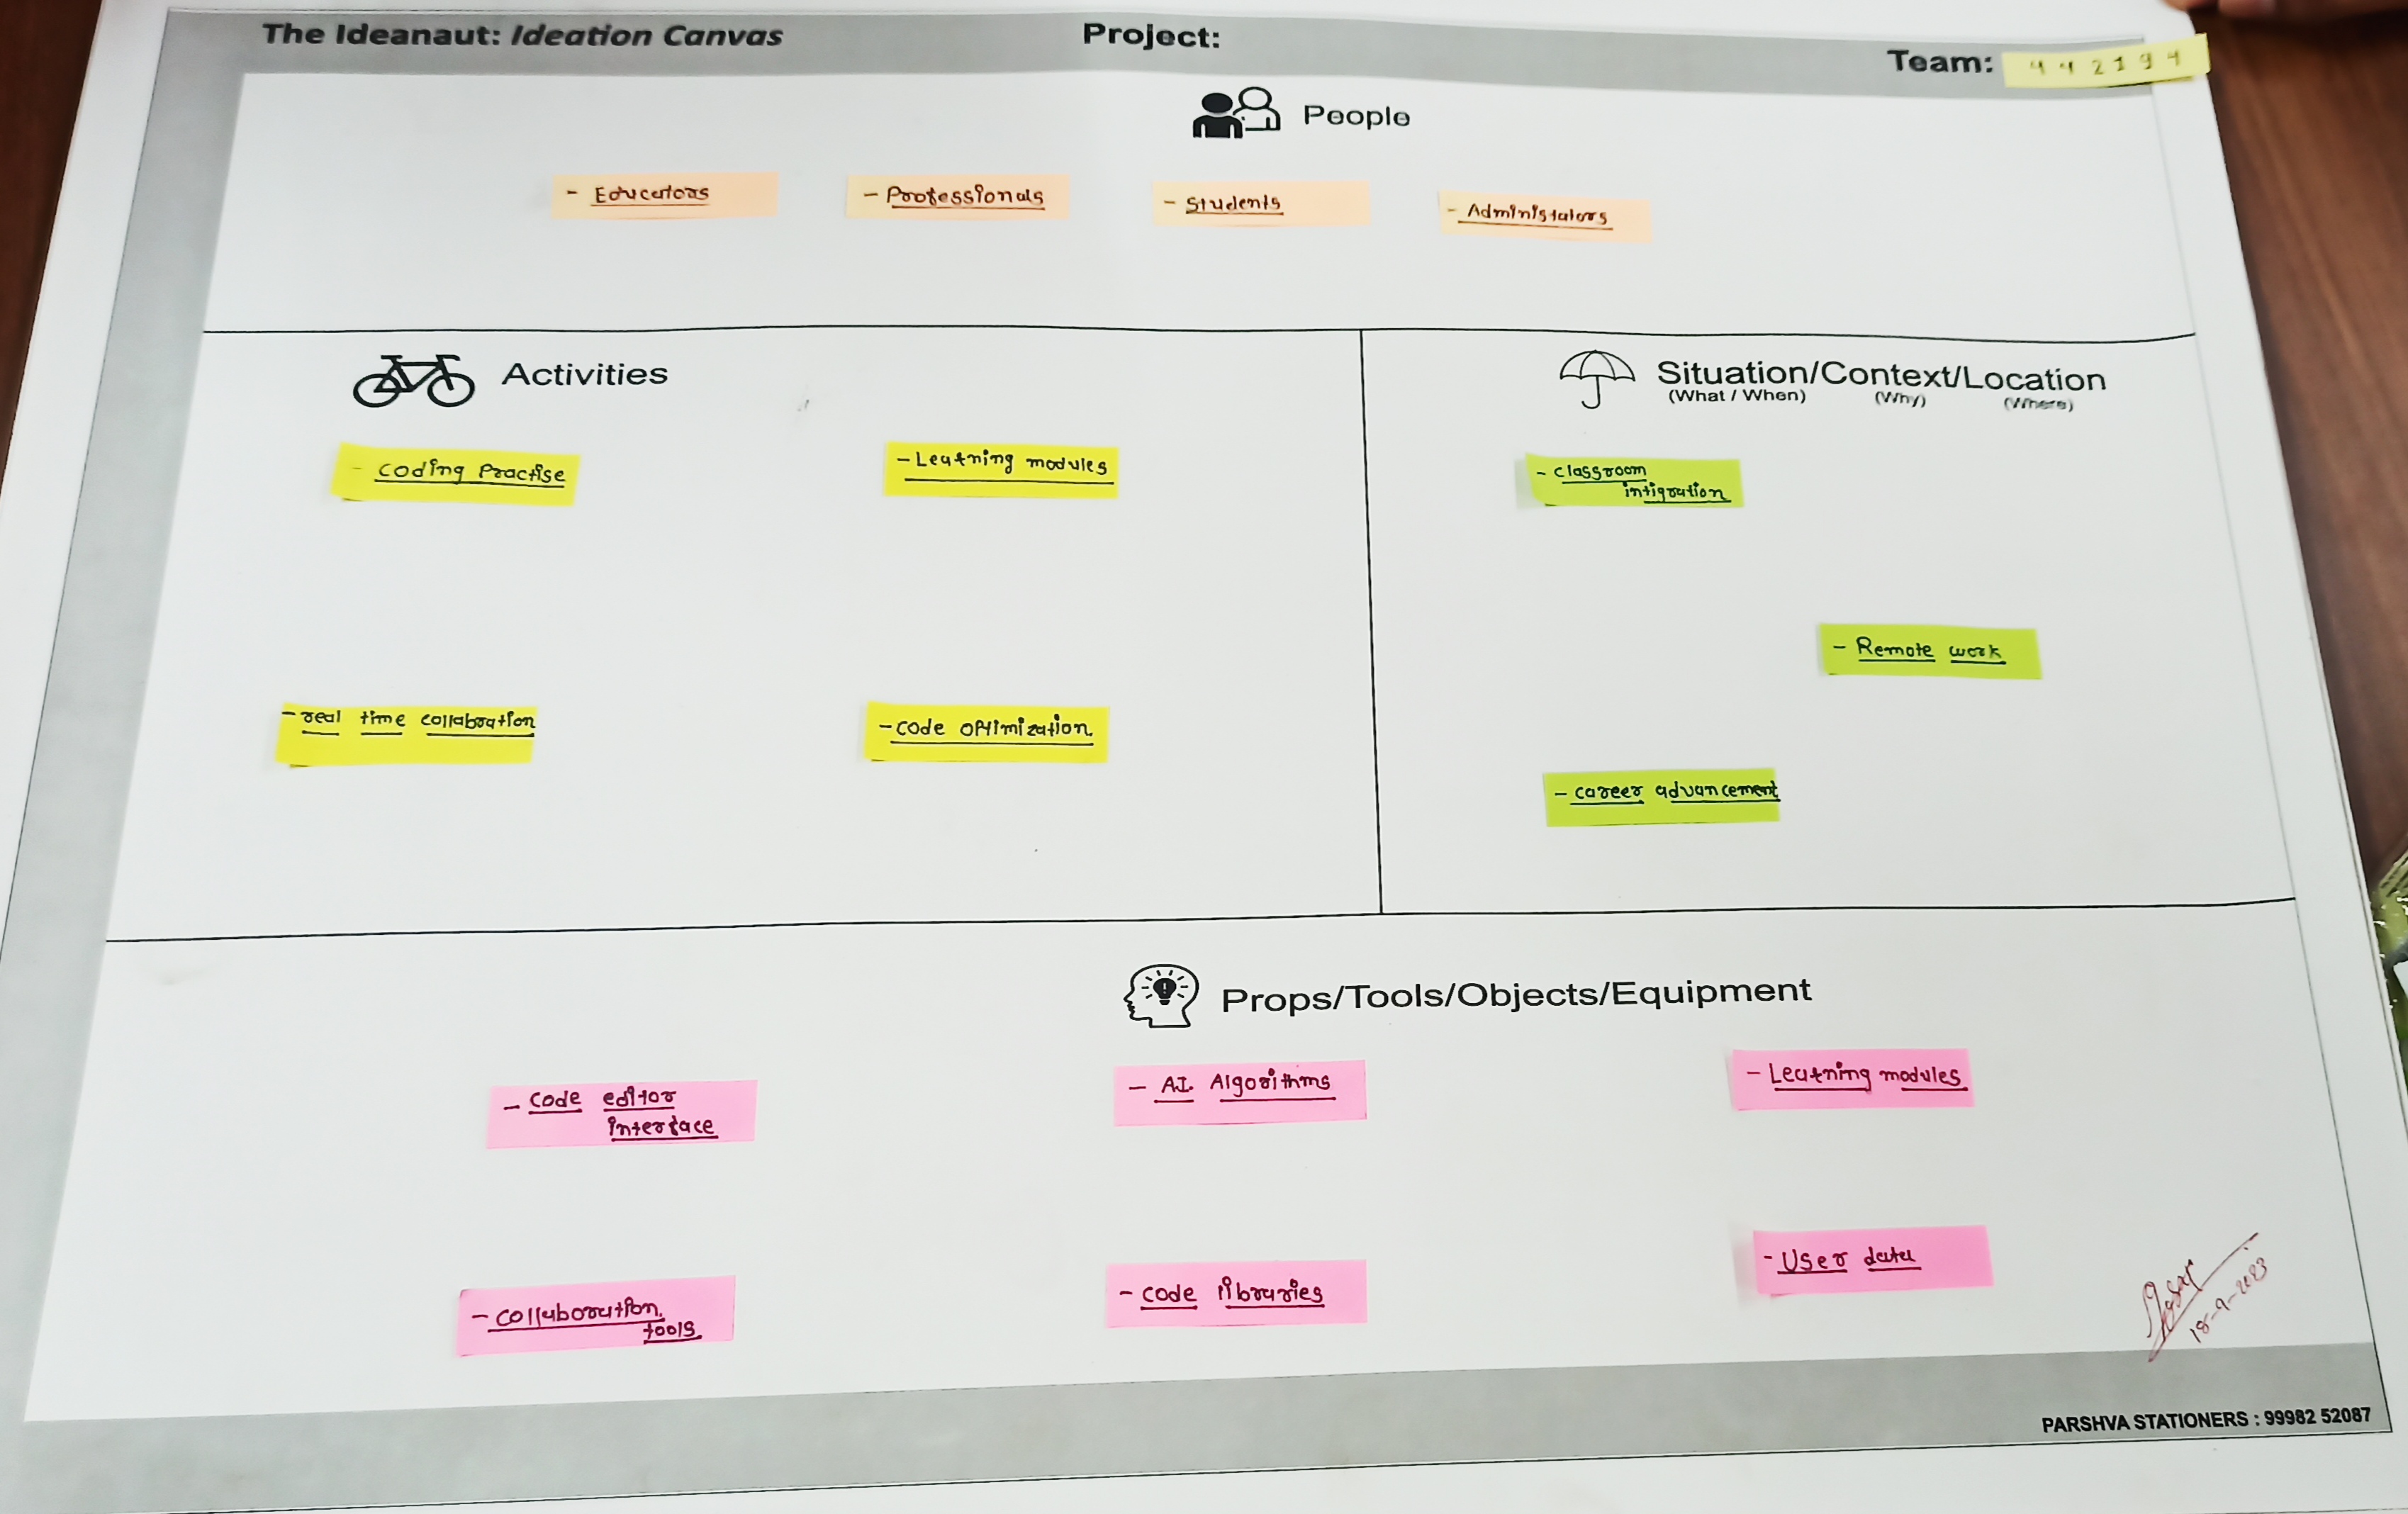 The Ideanaut: Ideation Canvas
Project:
Team: 442194
People
- Educators
- Professionals
- Students
- Administators
Activities
- coding Practise
- Learning modules
- real time collabration
- code optimization
Situation/Context/Location
(What / When) (Why) (Where)
- classroom
intigration
- Remote work
- career advancement
Props/Tools/Objects/Equipment
- code editor
interface
- A.I. Algorithms
- Learning modules
- collaboration
tools
- code libraries
- User data
18-9-2023
PARSHVA STATIONERS : 99982 52087